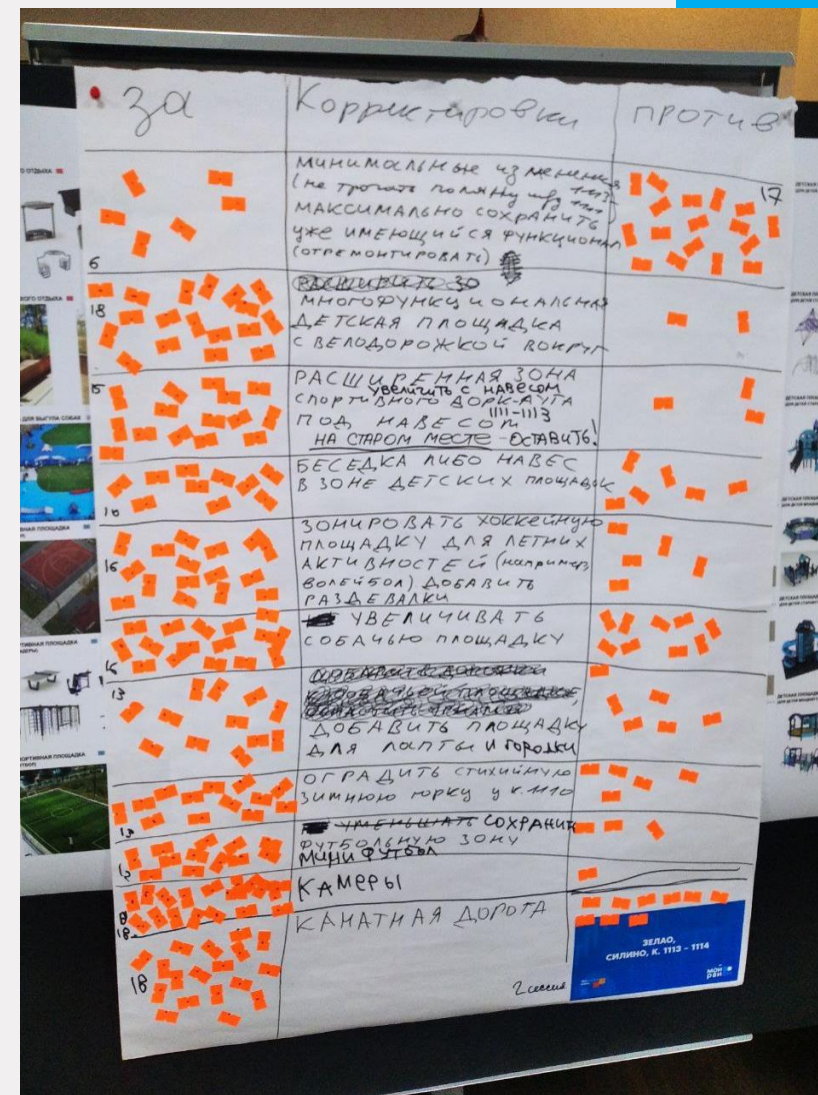 за
Корректировки
против
6
МИНИМАЛЬНЫЕ ИЗМЕНЕНИЯ
(не трогать поляну мжд 1113-1111)
МАКСИМАЛЬНО СОХРАНИТЬ
УЖЕ ИМЕЮЩИЙСЯ ФУНКЦИОНАЛ
(ОТРЕМОНТИРОВАТЬ)
17
18
МНОГОФУНКЦИОНАЛЬНАЯ
ДЕТСКАЯ ПЛОЩАДКА
С ВЕЛОДОРОЖКОЙ ВОКРУГ
15
РАСШИРЕННАЯ ЗОНА
УВЕЛИЧИТЬ С НАВЕСОМ
СПОРТИВНОГО ВОРК-АУТА
1111-1113
ПОД НАВЕСОМ
НА СТАРОМ МЕСТЕ - ОСТАВИТЬ!
16
БЕСЕДКА ЛИБО НАВЕС
В ЗОНЕ ДЕТСКИХ ПЛОЩАДОК
16
ЗОНИРОВАТЬ ХОККЕЙНУЮ
ПЛОЩАДКУ ДЛЯ ЛЕТНИХ
АКТИВНОСТЕЙ (например
ВОЛЕЙБОЛ) ДОБАВИТЬ
РАЗДЕВАЛКИ
УВЕЛИЧИВАТЬ
СОБАЧЬЮ ПЛОЩАДКУ
13
ДОБАВИТЬ ПЛОЩАДКУ
ДЛЯ ЛАПТЫ И ГОРОДКИ
ОГРАДИТЬ СТИХИЙНУЮ
ЗИМНЮЮ ГОРКУ У К. 1110
УМЕНЬШАТЬ СОХРАНИТЬ
ФУТБОЛЬНУЮ ЗОНУ
МИНИ ФУТБОЛ
КАМЕРЫ
18
КАНАТНАЯ ДОРОГА
18
2 сессия
ЗЕЛАО,
СИЛИНО, К. 1113 – 1114
МОЙ
РАЙОН